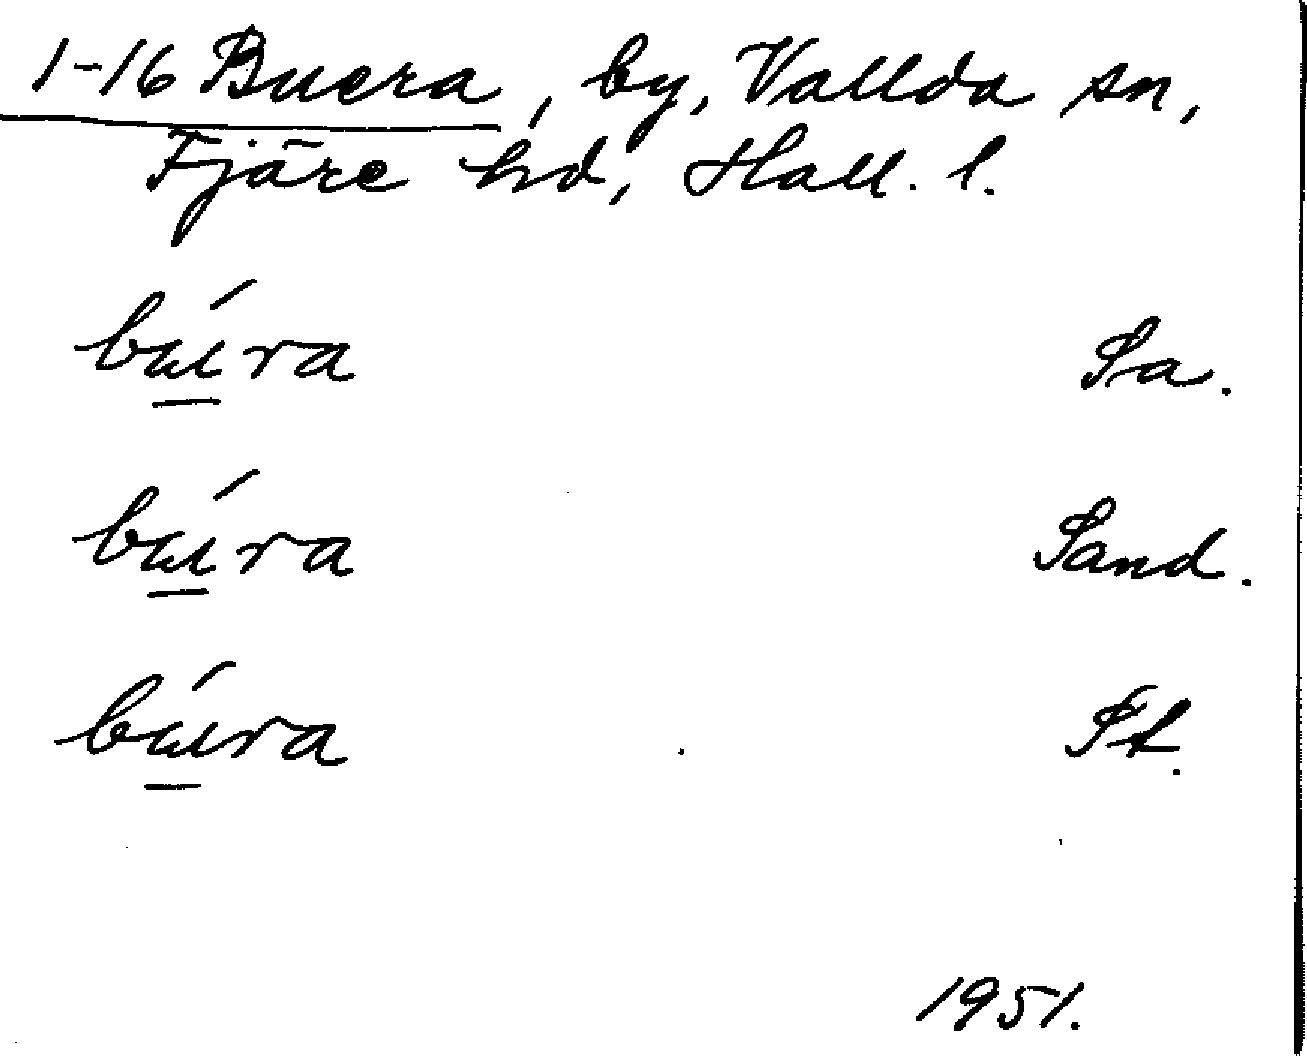 1-16 Buera, by, Vallda sn,
Fjäre hd, Hall. l.
bú̲ra Sa.
bú̲ra Sand.
bú̲ra St.
1951.